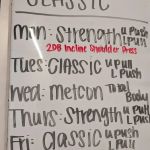 CLASSIC
Mon: Strength U Push L Pull
2DB Incline Shoulder Press
Tues: CLASSIC U Pull L Push
Wed: metcon Total Body
Thurs: Strength U Pull L Push
Fri: Classic U Push L Pull